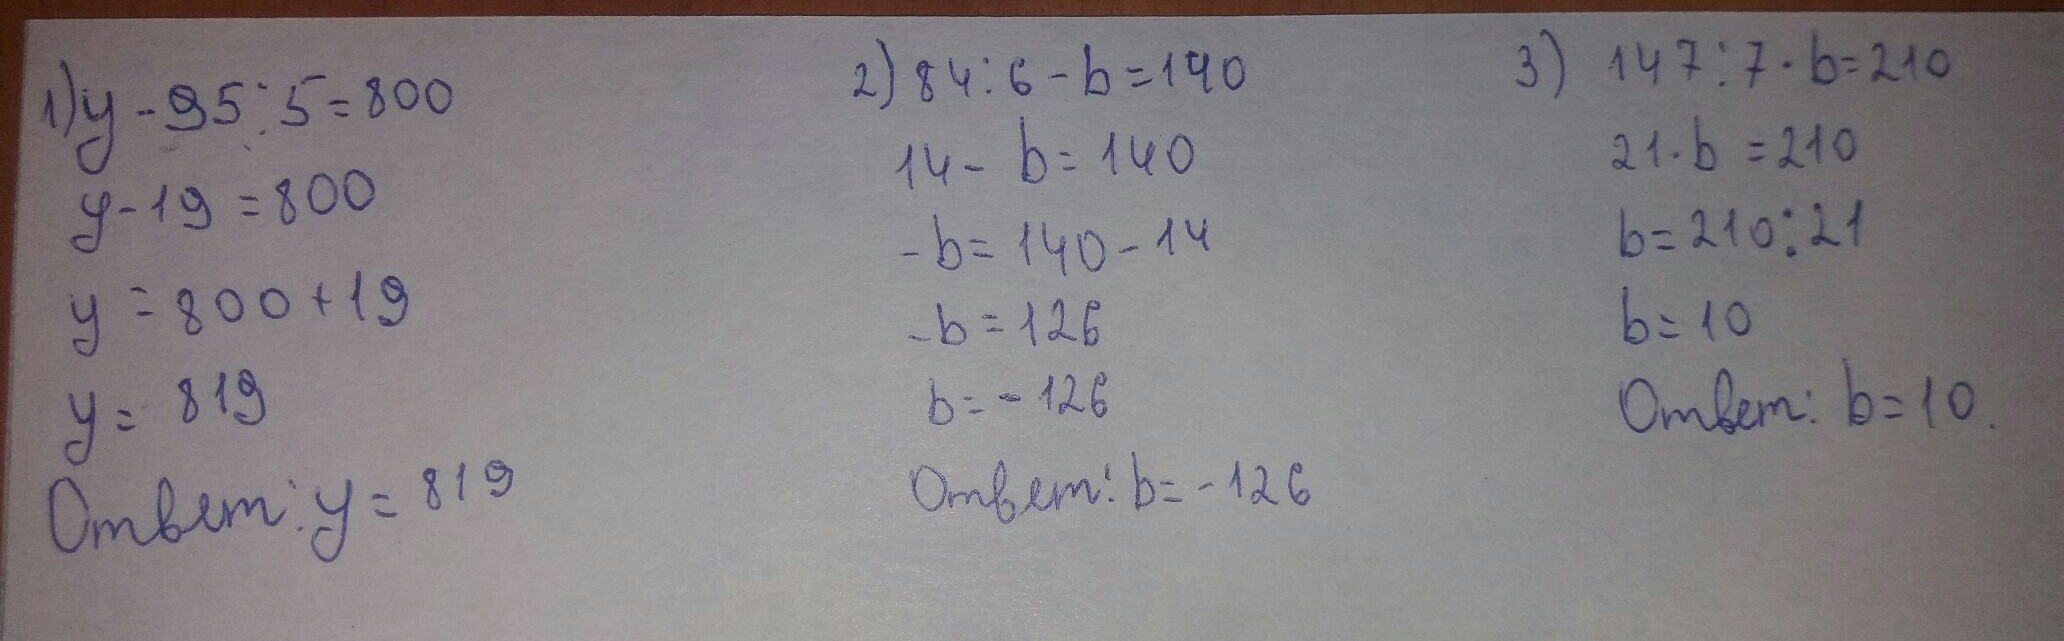 1) y - 95 : 5 = 800
y - 19 = 800
y = 800 + 19
y = 819
Ответ: y = 819
2) 84 : 6 - b = 140
14 - b = 140
- b = 140 - 14
- b = 126
b = - 126
Ответ: b = - 126
3) 147 : 7 · b = 210
21 · b = 210
b = 210 : 21
b = 10
Ответ: b = 10.